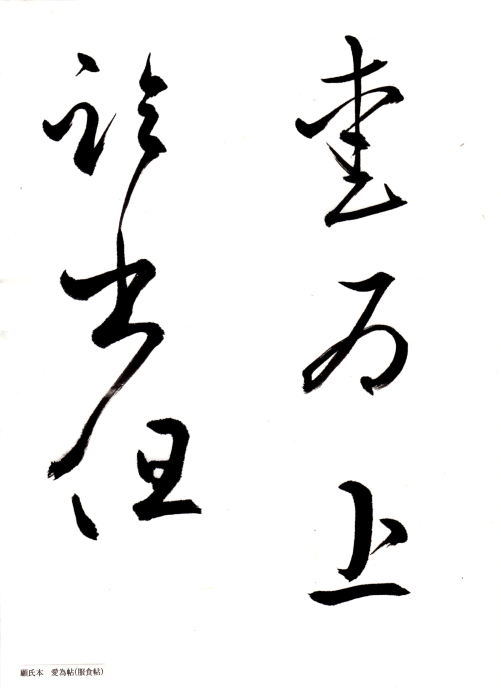 愛為上
臨書但
顧氏本　愛為帖(服食帖)